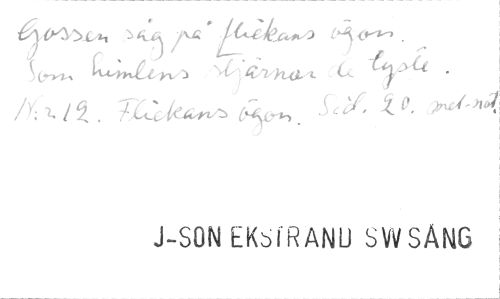 Gossen såg på flickans ögon.
Som himlens stjärnor de lyste.
Nr 12. Flickans ögon. Sid. 20. mel-not.
J-SON EKSTRAND SW SÅNG